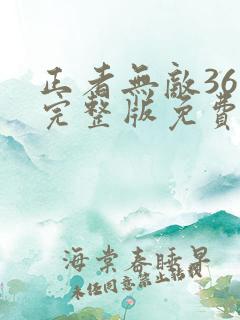 正者無敵36
完整版免費
海棠春睡早
未任同意禁止轉載